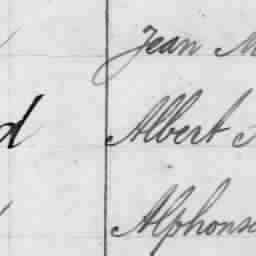 Jean M
d Albert
Alphonse